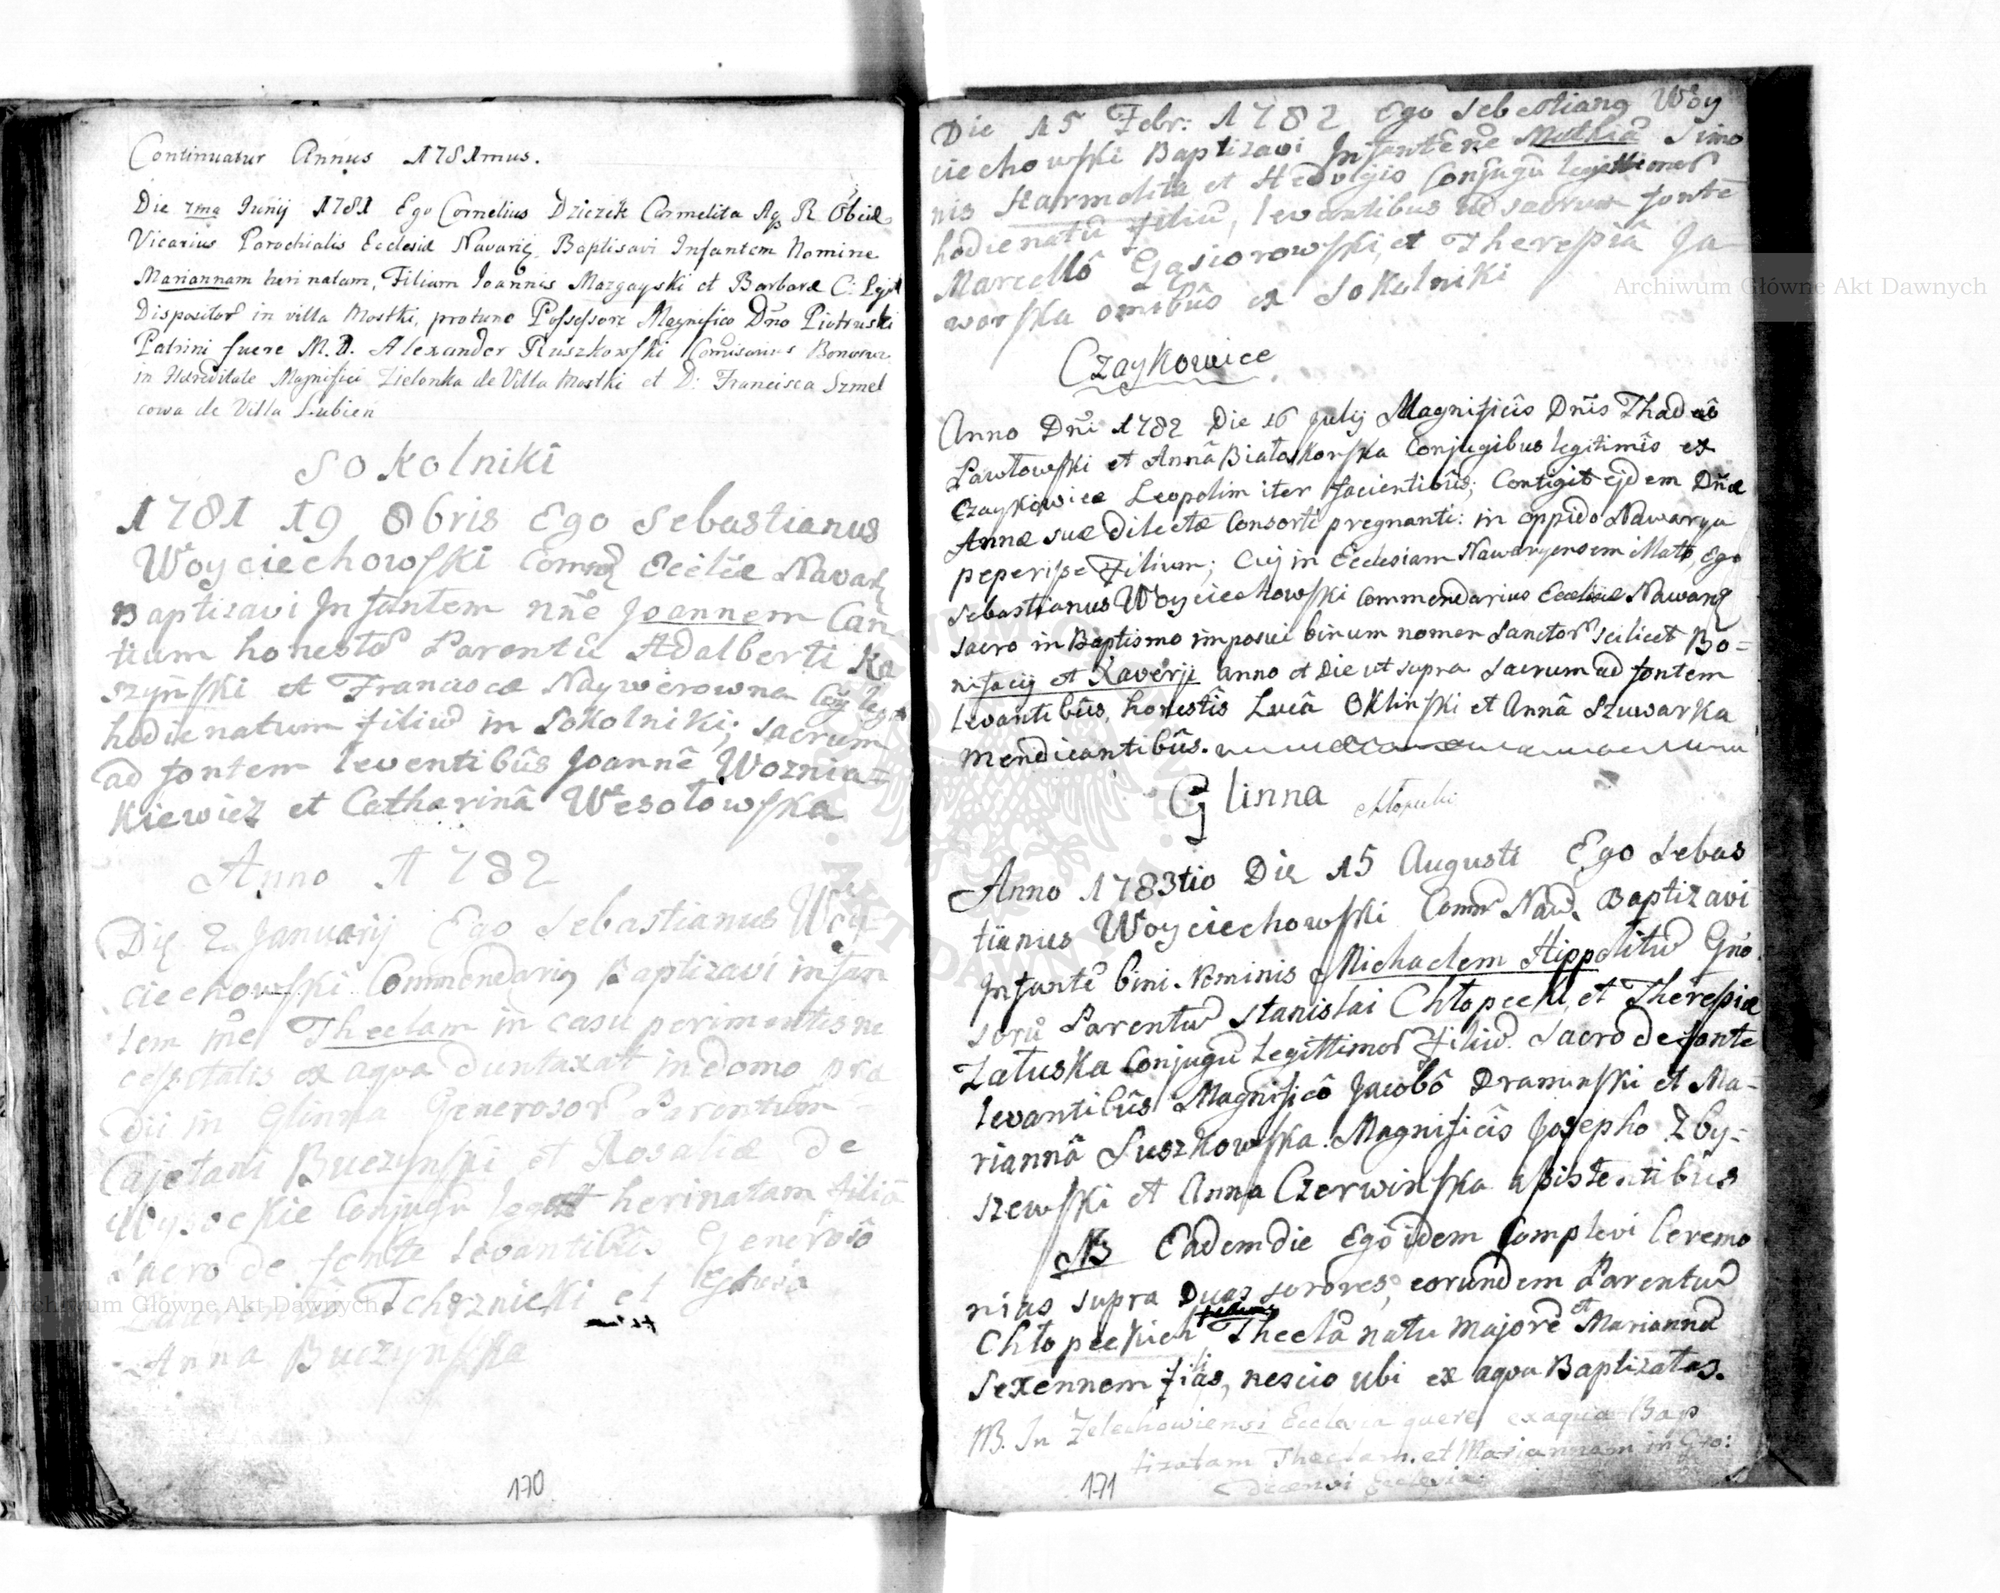 Continuatur Annus 1781mus.
Die 7ma Junij 1781 Ego Cornelius Dziezik Carmelita Ag R Obser
Vicarius Parochialis Ecclesiæ Navarię Baptisavi Infantem Nomine
Mariannam heri natam, Filiam Joannis Mazgayski et Barbaræ C: Legit
Disposit in villa Mostki, protunc Possessore Magnifico Dno Piotruski
Patrini fuere M. D. Alexander Ruszkowski Comisarius Bonorum
in Hereditate Magnifici Zielonka de Villa Mostki et D: Francisca Szmel
cowa de Villa Lubien
Sokolniki
1781 19 8bris Ego Sebastianus
Woyciechowski Ecclæ Navar
Baptizavi Infantem nne Joannem Can
tium honesto Parentu Adalberti Ka
szynski et Franciscæ Naywerowna
hodie natum filiu in Sokolniki; sacrum
ad fontem leventibûs Joannê Woznia=
kiewicz et Catharinâ Wesołowska
Anno 1782
Die 2 Januarij Ego Sebastianus Woy
ciechowski Commendariq Baptizavi infan
tem nne Theclam in casu periment is ne
cessitatis ex aqva duntaxat in domo præ
dii in Glinna Generosor Parentum
Cajetani Buczynski et Rosaliæ de
Wysockie Conjugu heri natam filiā
Sacro de fonte levantibûs Generosô
Laurentiô et
Anna Buczynska
170
Die 15 Febr: 1782 Ego Sebestianq Woy
ciechowski Baptizavi Infante ne Mathiā Simo
nis Harmolita et Hedvigis Conjugū legittimor
hodie natū filiū, levantibus ad sacrum fonte
Marcellô Gąsiorowski, et Theresiâ Ja
worska omibûs ex Sokolniki
Czaykowice
Anno Dni 1782 Die 16 Julij Magnificîs Dnis Thadeô
Pawłowski et Annâ Białoskorska Conjugibus legitimîs ex
Czaykowice Leopolim iter facientibûs; Contigit ejdem Dnæ
Annæ suæ dilectæ Consorti pregnanti: in oppido Nawarya
peperisse Filium; Cuj in Ecclesiam Nawaryensem illato, Ego
Sebastianus Woyciechowski Commendarius Ecclesiæ Nawarę
sacro in Baptismo imposui binum nomen Sanctor scilicet Bo=
nifacij et Xaverji anno et Die ut supra Sacrum ad fontem
levantibûs, honestîs Lucâ Oklinski et Annâ Szuwarka
mendicantibûs.
Glinna Chłopecki
Anno 1783tio Die 15 Augusti Ego Sebas
tianus Woyciechowski Comr Naw. Baptizavi
Infantē bini Nominis Michaelem Hippolitū Gno
sorū Parentū Stanislai Chłopecki, et Theresiæ
Załuska Conjugū Legittimor Filiū. Sacro de fonte
levantibûs Magnificô Jacobô Dramunski et Ma-
riannâ Suszkowska. Magnificîs Josepho Zby=
szewski et Anna Czerwinska assistentibûs
NB Eadem die Ego idem Complevi Ceremo
nias supra Duas sorores, eorundem Parentū
Chłopeckich Theclā natu majorē et Mariannā
Sexennem filias, nescio ubi ex aqva Baptizatas.
NB. In Zelechowiensi Ecclesia quere ex aqua Bap
tizatam Theclam. et Mariannam in Gro:
decensi Ecclesia.
171
Archiwum Główne Akt Dawnych
Archiwum Główne Akt Dawnych